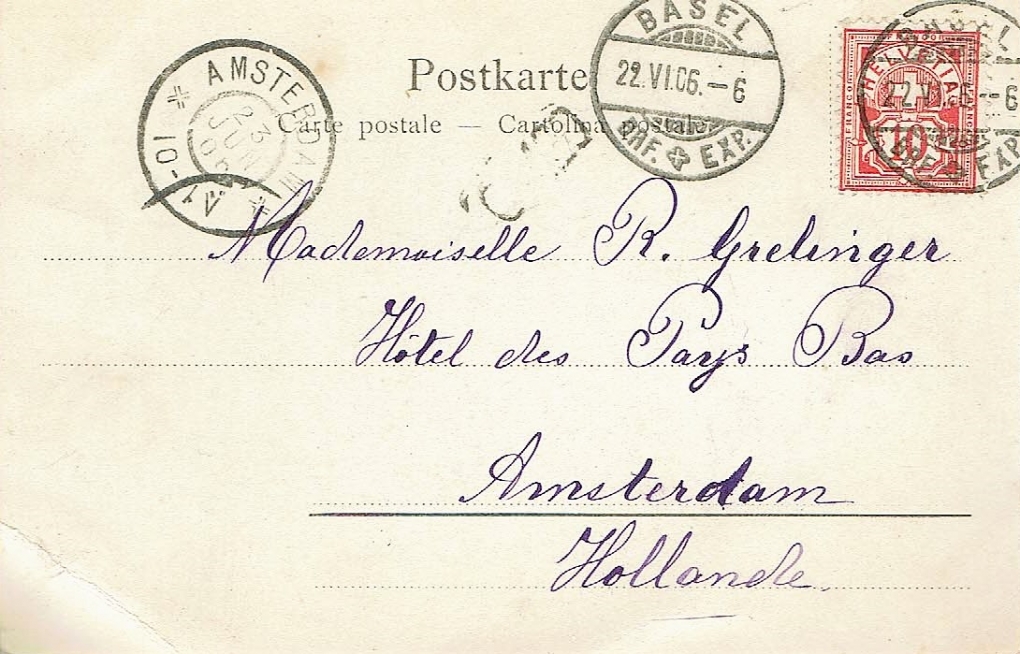 Postkarte
Carte postale — Cartolina postale
AMSTERDAM
23
JUN
06
10-11 V
BASEL
22.VI.06.-6
BRF. EXP.
HELVETIA
FRANCO
10
BASEL
22.VI.06.-6
BRF. EXP.
Mademoiselle R. Grelinger
Hôtel des Pays Bas
Amsterdam
Hollande.